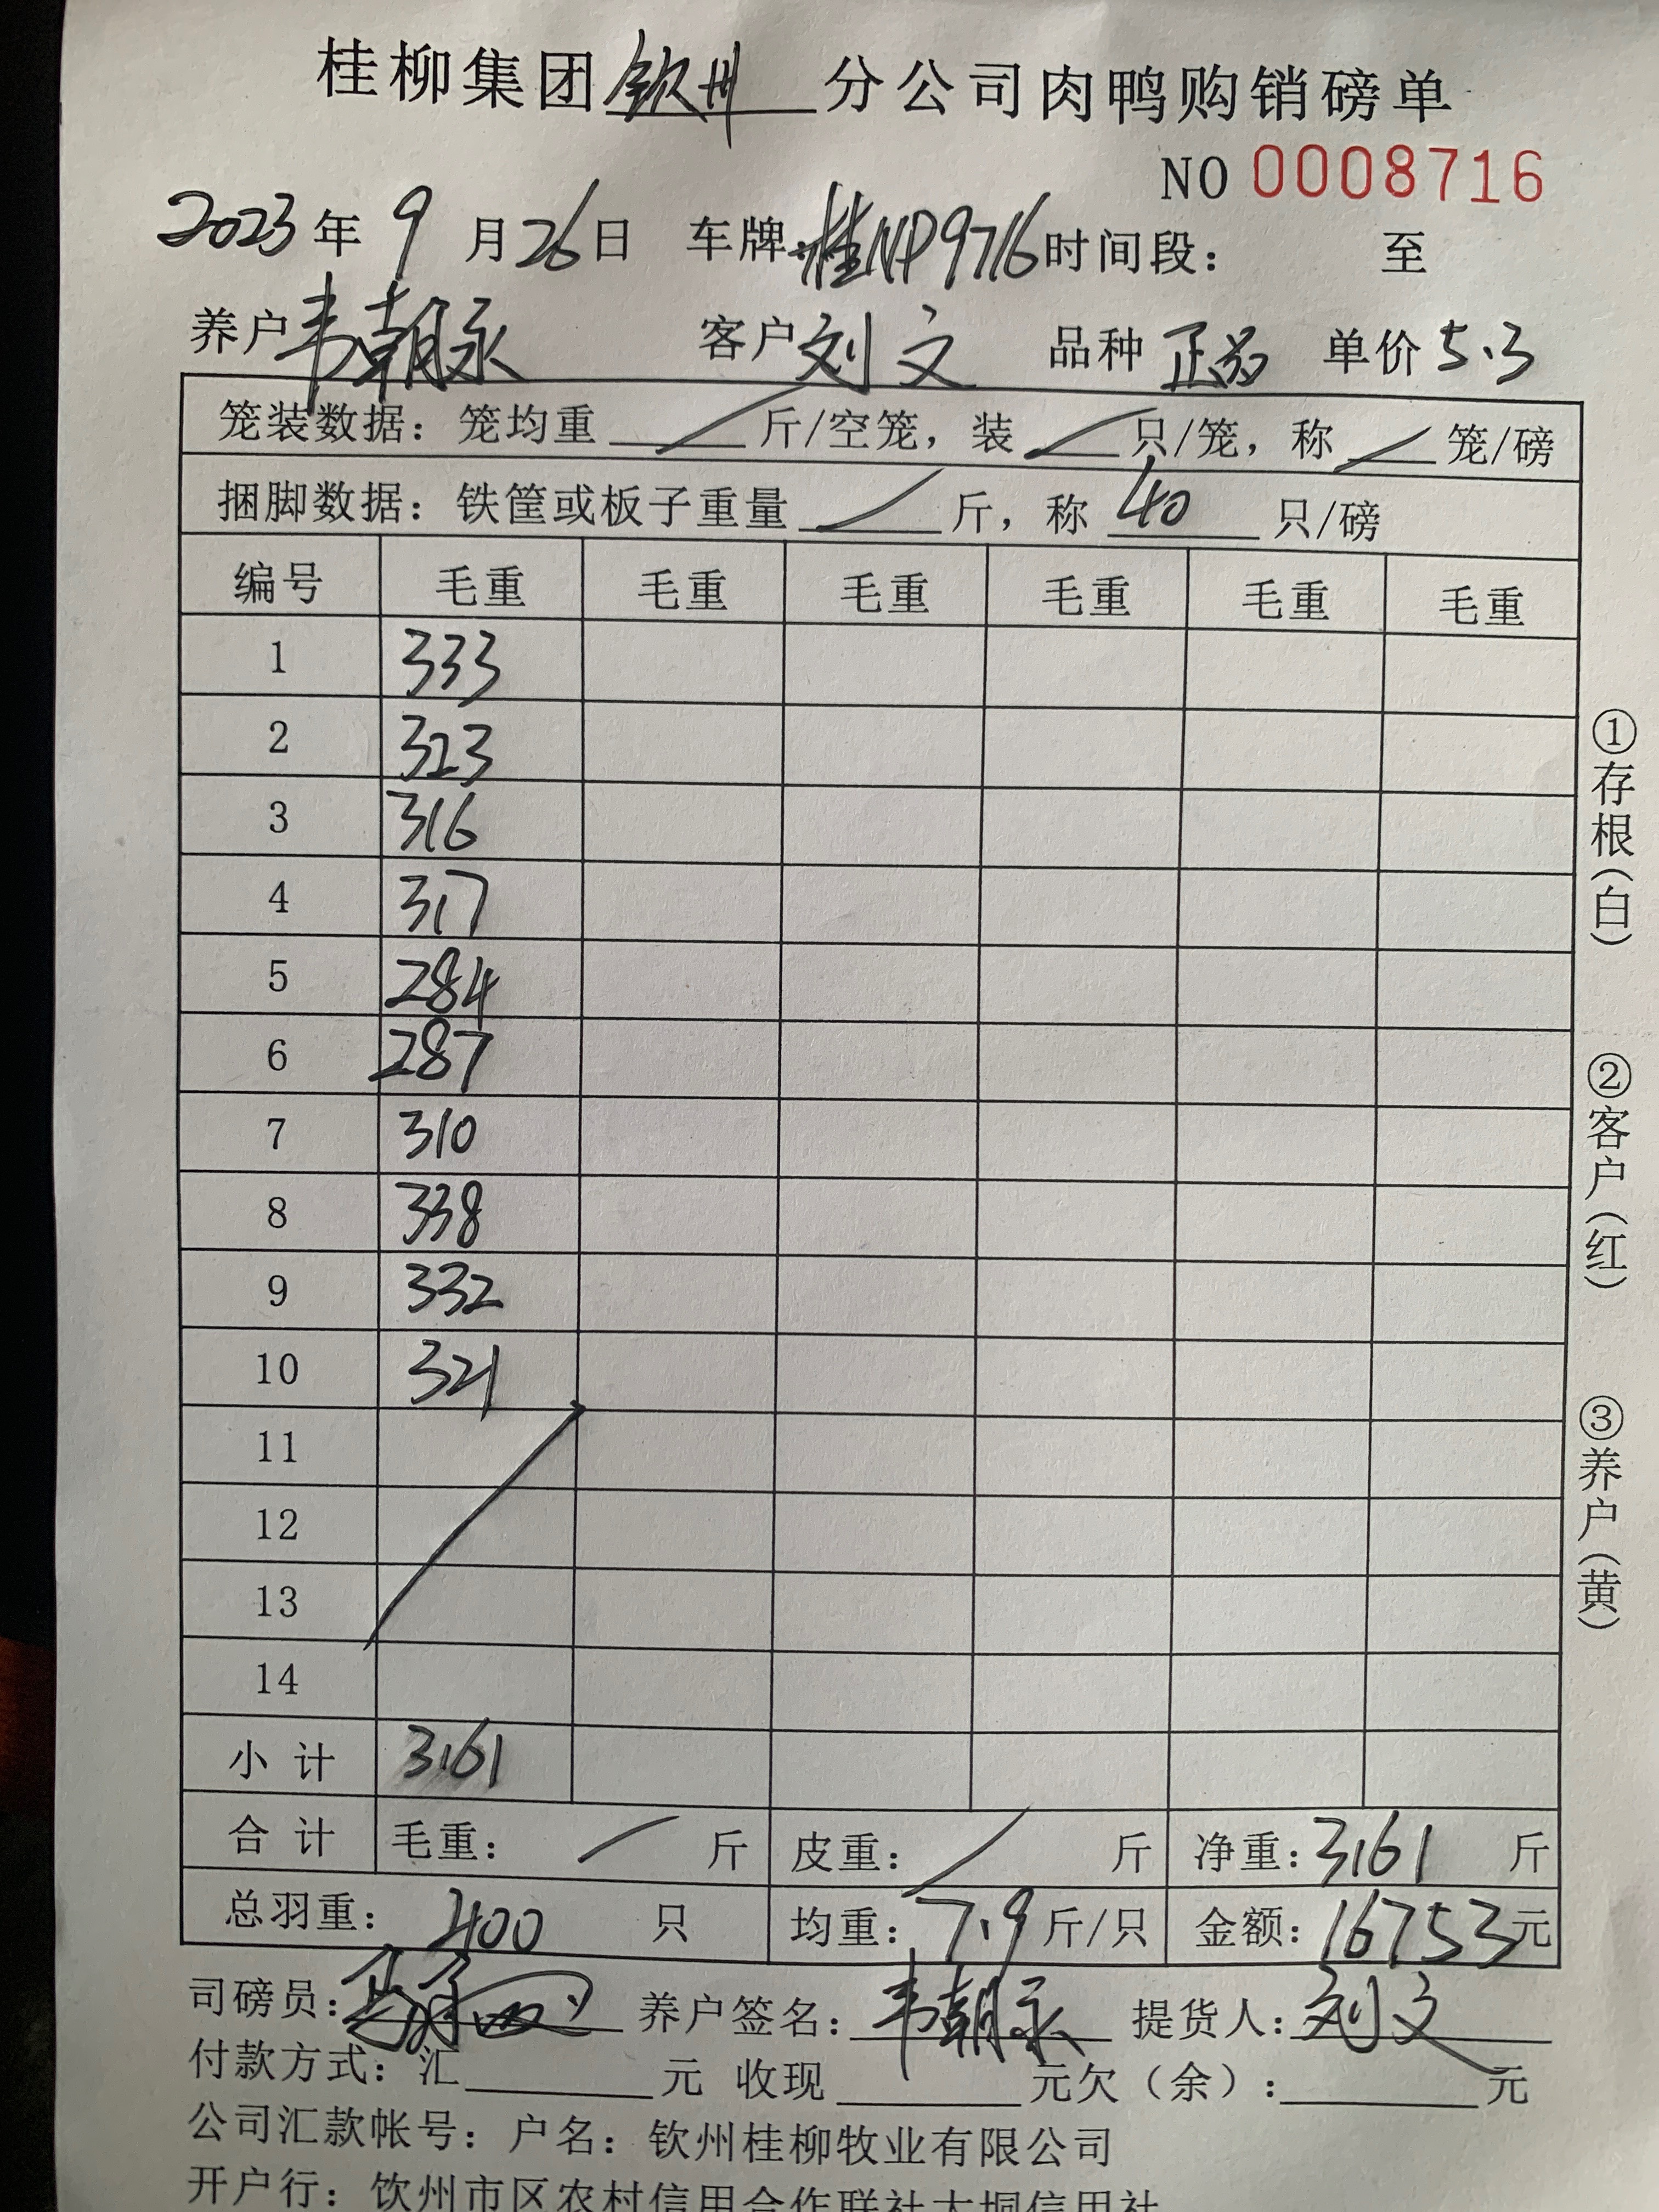 桂柳集团钦州分公司肉鸭购销磅单
NO 0008716
2023年9月26日 车牌:桂NP9716时间段: 至
养户韦朝永 客户刘文 品种正品 单价5.3
笼装数据:笼均重/斤/空笼,装/只/笼,称/笼/磅
捆脚数据:铁筐或板子重量/斤,称40只/磅
编号 毛重 毛重 毛重 毛重 毛重 毛重
1 333
2 323
3 316
4 317
5 284
6 287
7 310
8 338
9 332
10 321
11
12
13
14
小计 3161
合计 毛重:/斤 皮重:/斤 净重:3161斤
总羽重:400只 均重:7.9斤/只 金额:16753元
司磅员: 养户签名:韦朝永 提货人:刘文
付款方式:汇____元 收现____元欠(余):____元
公司汇款帐号:户名:钦州桂柳牧业有限公司
开户行:钦州市区农村信用合作联社大垌信用社
①存根(白)
②客户(红)
③养户(黄)